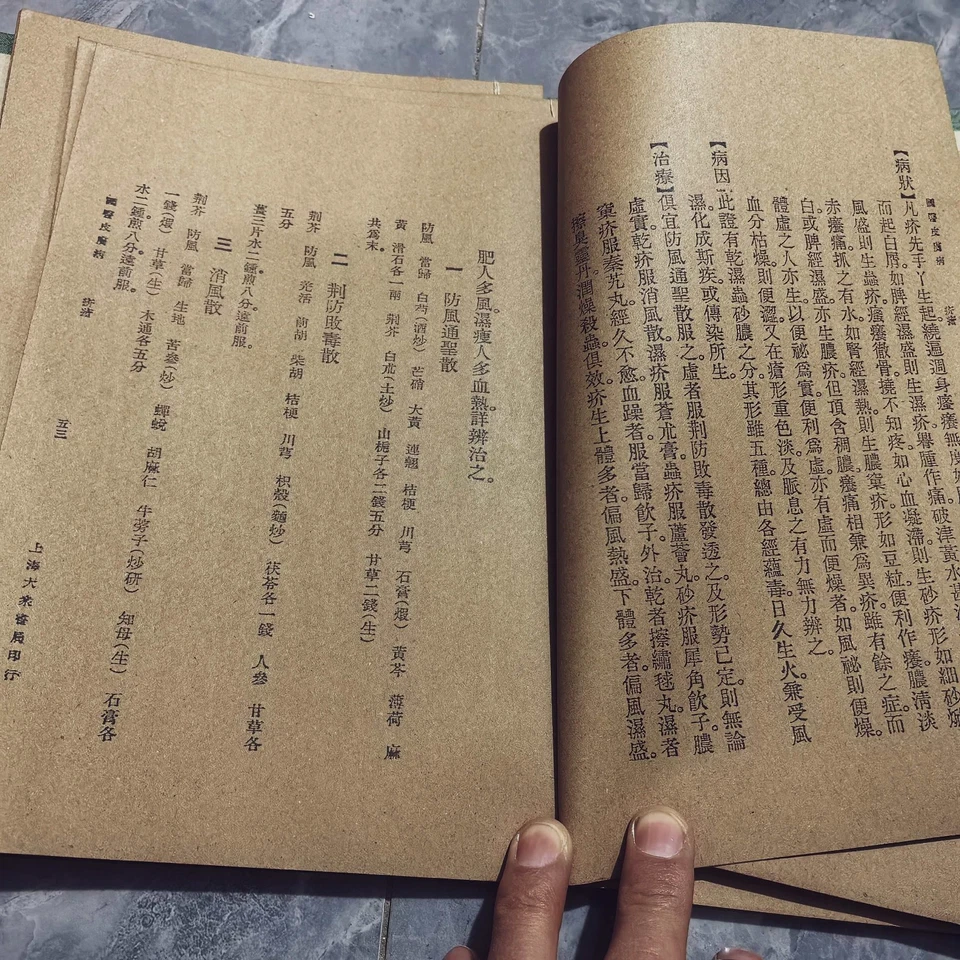 國醫皮膚病　疥瘡
【病狀】凡疥先手丫生起繞遍過身瘙癢無度
而起白屑。如脾經濕盛則生濕疥。臀腫作痛。破津黃水甚
風盛則生蟲疥。瘙癢徹骨。撓不知疼。如心血凝滯。則生砂疥。形如細砂焮
赤癢痛。抓之有水。如腎經濕熱。則生膿窠疥。形如豆粒。便利作癢。膿清淡
白。或脾經濕盛。亦生膿疥。但頂含稠膿。癢痛相兼爲異。疥雖有餘之症。而
體虛之人亦生。以便祕爲實。便利爲虛。亦有虛而便燥者。如風祕則便燥。
血分枯燥。則便澀。又在瘡形重色淡。及脈息之有力無力辨之。
【病因】此證有乾濕蟲砂膿之分。其形雖五種。總由各經蘊毒。日久生火。兼受風
濕化成斯疾。或傳染所生。
【治療】俱宜防風通聖散服之。虛者服荆防敗毒散發透之。及形勢已定。則無論
虛實。乾疥服消風散。濕疥服蒼朮膏。蟲疥服蘆薈丸。砂疥服犀角飲子。膿
窠疥服秦艽丸。經久不愈。血躁者服當歸飲子。外治。乾者擦繡毬丸。濕者
擦臭靈丹。潤燥殺蟲俱效。疥生上體多者。偏風熱盛。下體多者。偏風濕盛。
肥人多風濕。瘦人多血熱。詳辨治之。
一　防風通聖散
防風　當歸　白芍(酒炒)　芒硝　大黃　連翹　桔梗　川芎　石膏(煅)　黃芩　薄荷　麻
黃　滑石各一兩　荆芥　白朮(土炒)　山梔子各二錢五分　甘草二錢(生)
共爲末。
二　荆防敗毒散
荆芥　防風　羌活　前胡　柴胡　桔梗　川芎　枳殼(麵炒)　茯苓各一錢　人參　甘草各
五分
薑三片水二鍾。煎八分。遠前服。
三　消風散
荆芥　防風　當歸　生地　苦參(炒)　蟬蛻　胡麻仁　牛蒡子(炒研)　知母(生)　石膏各
一錢(煅)　甘草(生)　木通各五分
水二鍾。煎八分。遠前服。
國醫皮膚病　疥瘡　五三　上海大衆書局印行